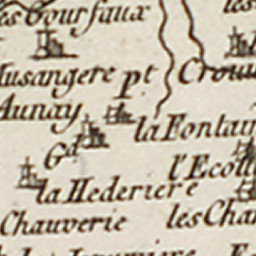 les Cour faux
Musangere pt Crou
Aunay
la Fontain
Gd
l'Ecoll
la Hederiere
Chauverie les Cha